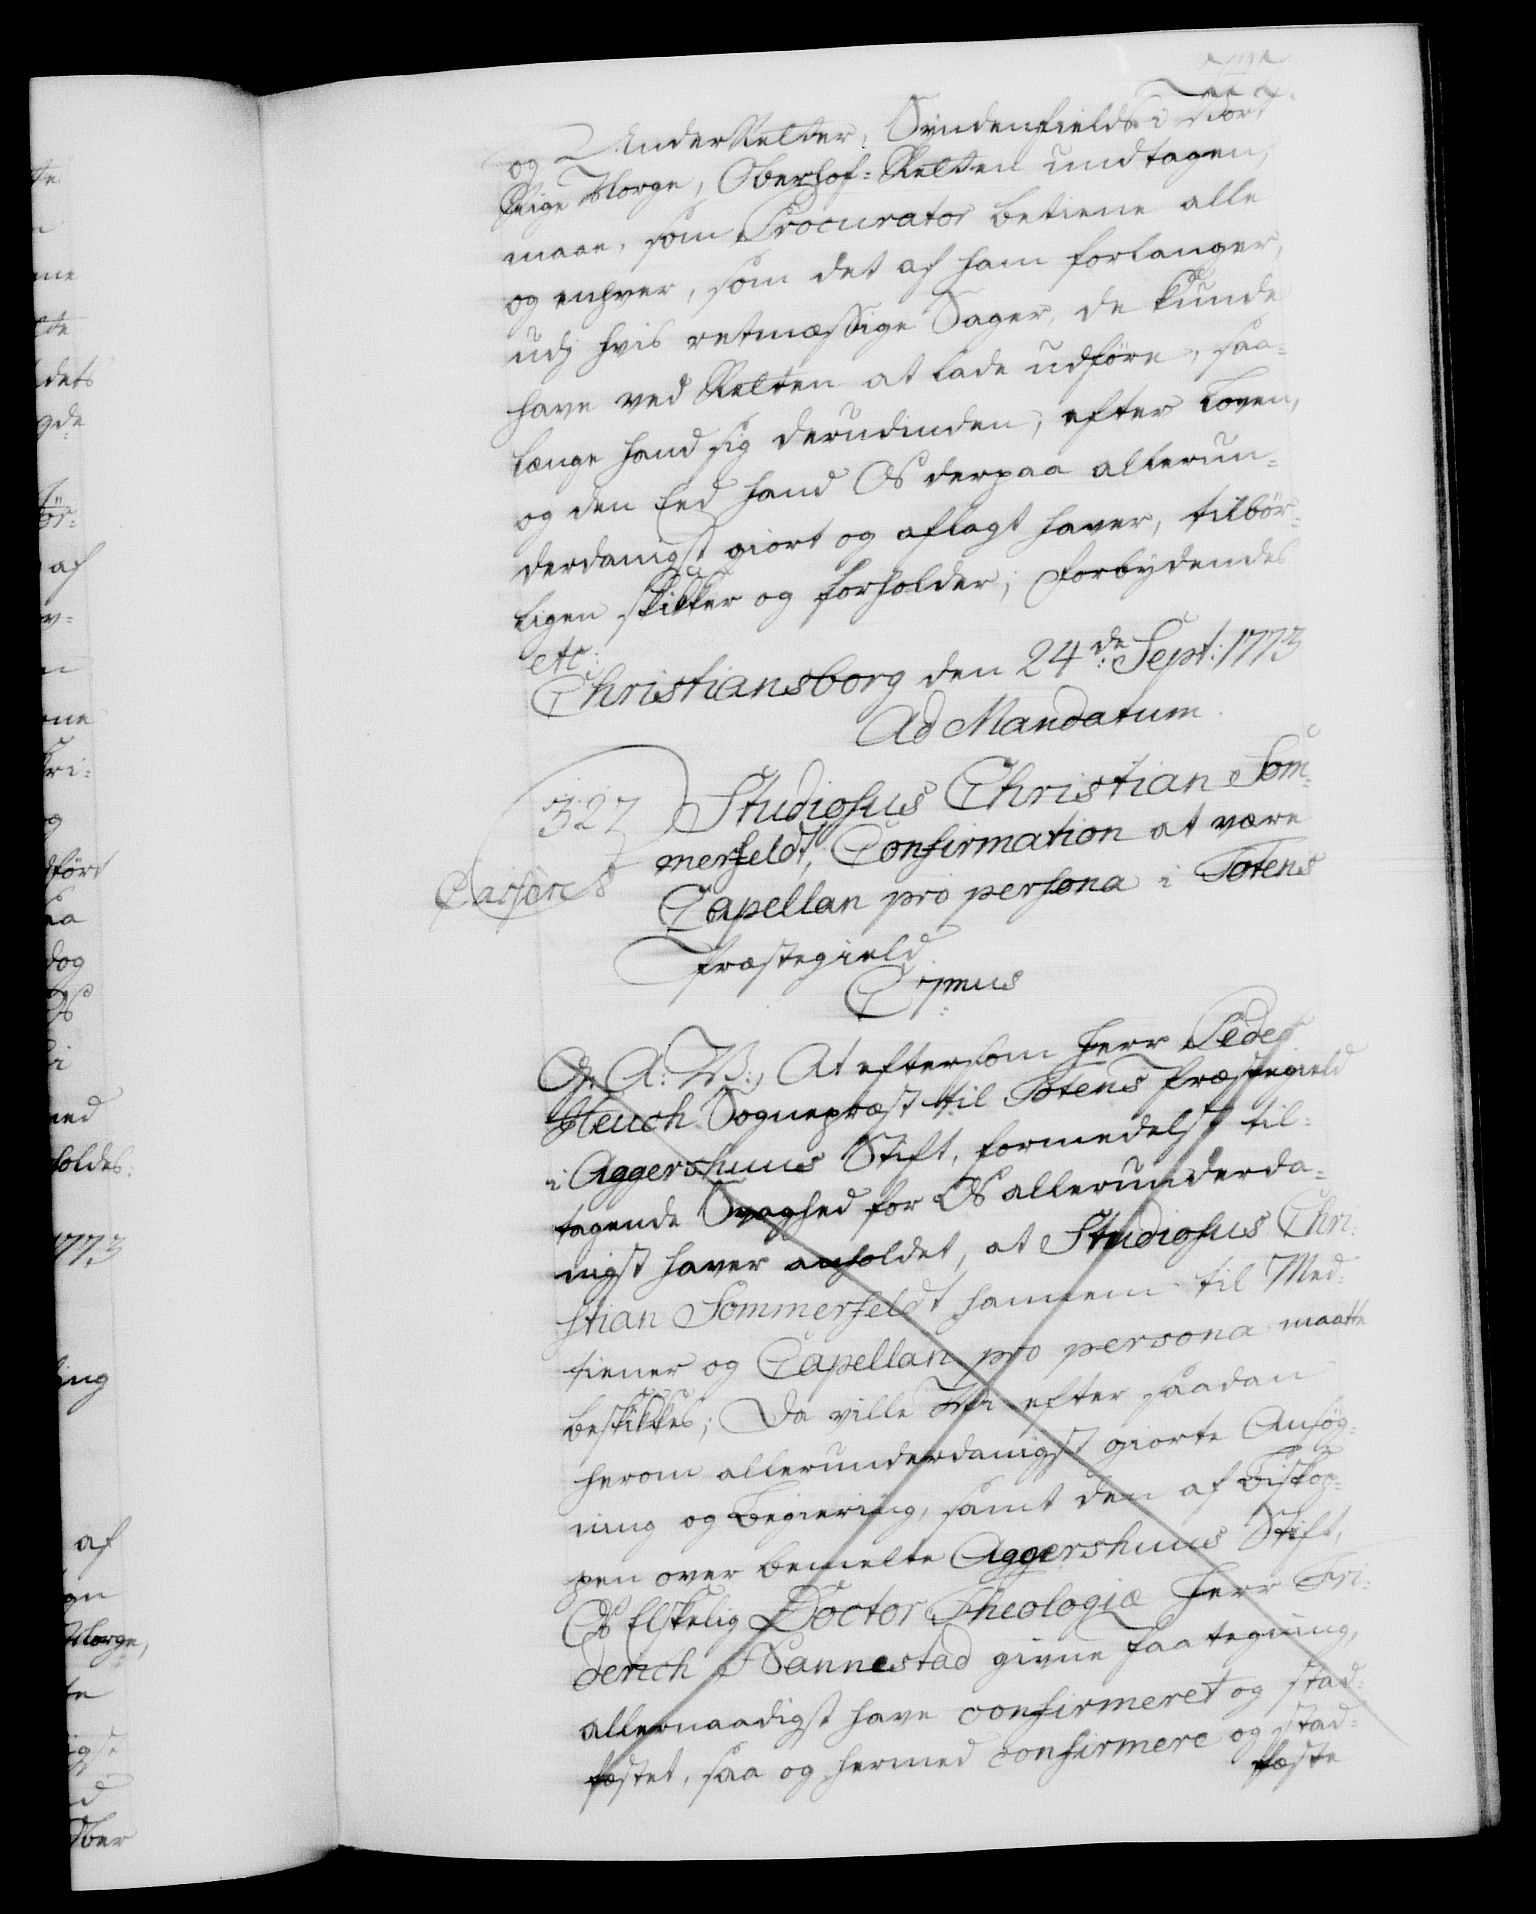 og UnderRetter, Syndenfields i vort
Rige Norge, Oberhof-Retten undtagen,
maae, som Procurator betiene alle
og enhver, som det af ham forlanger,
udj hvis retmæssige Sager, de kunde
have ved Retten at lade udføre, saa-
længe hand sig derudinden, efter Loven,
og den Eed hand Os derpaa allerun-
derdanigst giort og aflagt haver, tilbør-
ligen skikker og forholder; Forbydendes
etc:
Christiansborg den 24de Sept: 1773
Ad Mandatum.
327 Studiosus Christian Som-
merfeldt, Confirmation at være
Capellan pro persona i Totens
Præstegield
C 7mus
G: A: V:, At eftersom Herr Peder
Heuch Sognepræst til Totens Præstegield
i Aggershuus Stift, formedelst til-
tagende Svaghed for Os allerunderda-
nigst haver anholdet, at Studiosus Chri-
stian Sommerfeldt hannem til Med-
tiener og Capellan pro persona maatte
beskikkes; Da ville Vi efter saadan
herom allerunderdanigst giorte Ansøg-
ning og Begiering, samt den af Biskop-
pen over bemelte Aggershuus Stift,
Os Elskelig Doctor Theologiæ Herr Fri-
derich Nannestad givne Paategning,
allernaadigst have confirmeret og stad-
fæstet, saa og hermed confirmere og stad-
fæste